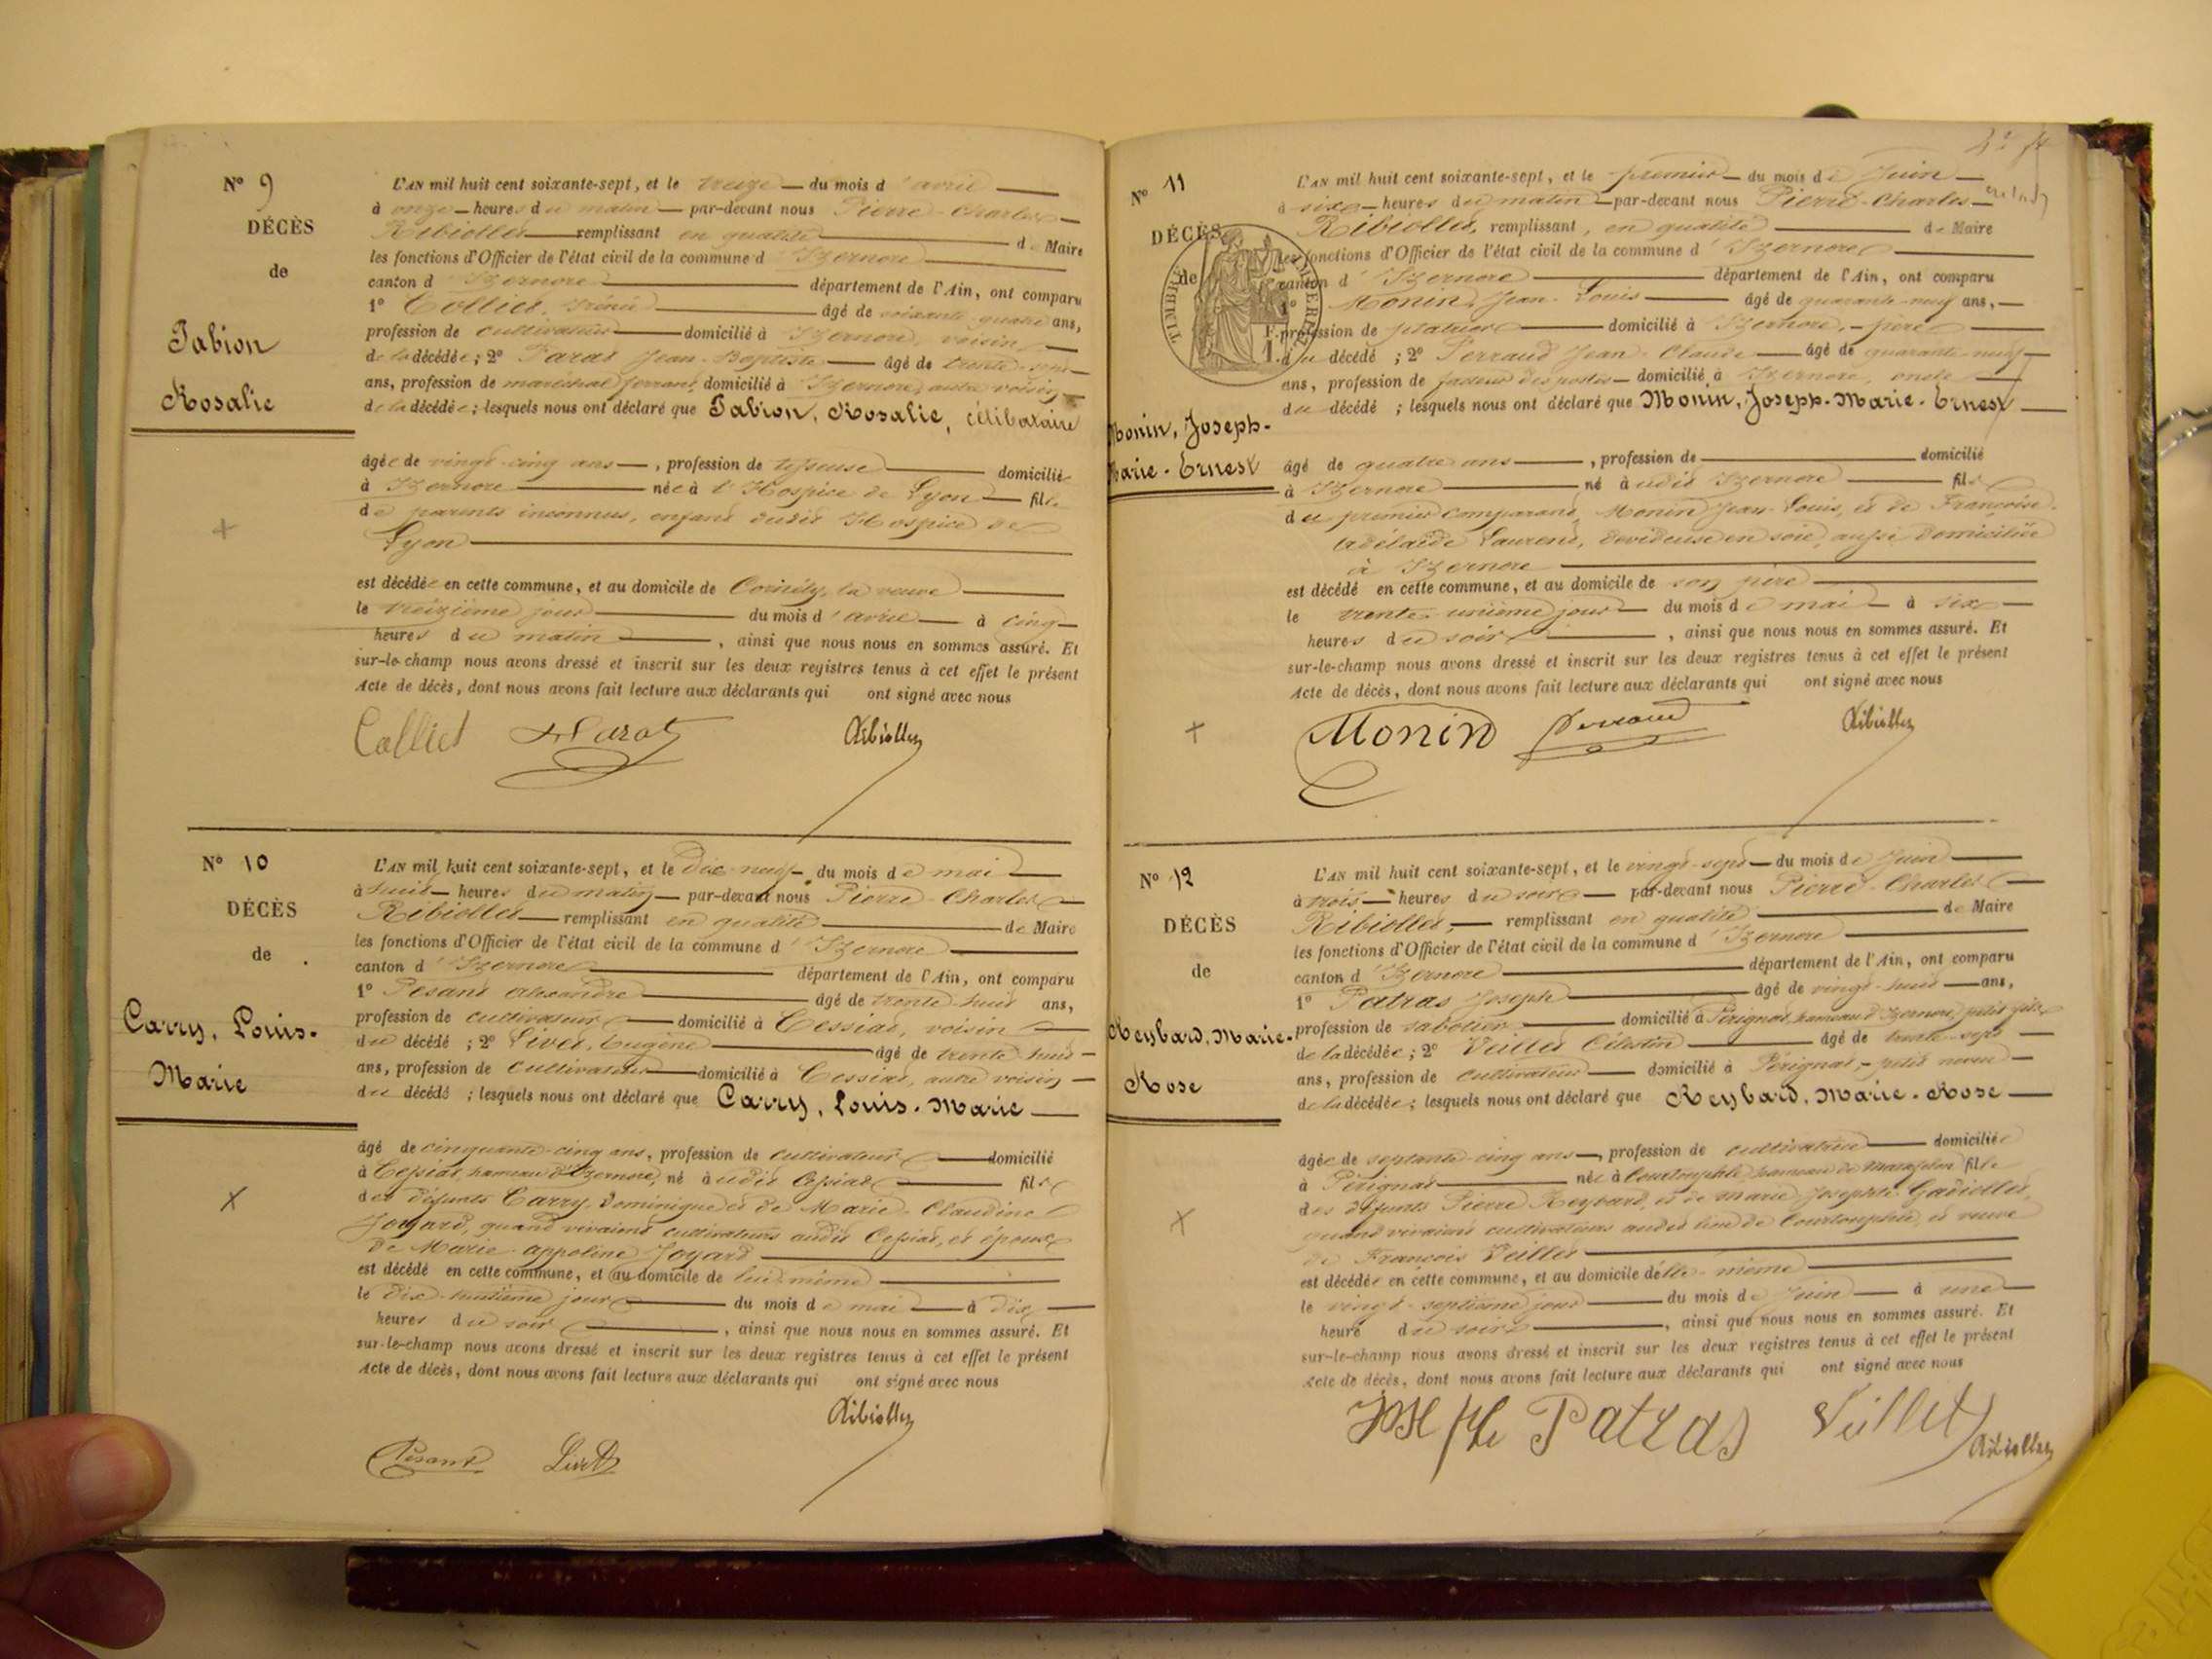 Nº 9
DÉCÈS
de
Fabion
Rosalie
L'AN mil huit cent soixante-sept, et le treize du mois d'avril
à onze heures du matin par-devant nous Pierre-Charles
Ribiollet remplissant en qualité de Maire
les fonctions d'Officier de l'état civil de la commune d'Izernore
canton d'Izernore département de l'Ain, ont comparu
1º Colliet, Irénée âgé de soixante-quatre ans,
profession de cultivateur domicilié à Izernore, voisin
de la décédée; 2º Jean-Baptiste âgé de trente
ans, profession de maréchal ferrant, domicilié à Izernore, autre voisin
de la décédée; lesquels nous ont déclaré que Fabion, Rosalie, célibataire
âgée de vingt-cinq ans, profession de tisseuse domiciliée
à Izernore née à l'Hospice de Lyon fille
de parents inconnus, enfant dudit Hospice de
Lyon
est décédée en cette commune, et au domicile de la veuve
le treizième jour du mois d'avril à cinq
heures du matin, ainsi que nous nous en sommes assuré. Et
sur-le-champ nous avons dressé et inscrit sur les deux registres tenus à cet effet le présent
Acte de décès, dont nous avons fait lecture aux déclarants qui ont signé avec nous
Colliet Ribiollet
Nº 10
DÉCÈS
de
Carry, Louis-
Marie
L'AN mil huit cent soixante-sept, et le dix-neuf du mois de mai
à huit heures du matin par-devant nous Pierre-Charles
Ribiollet remplissant en qualité de Maire
les fonctions d'Officier de l'état civil de la commune d'Izernore
canton d'Izernore département de l'Ain, ont comparu
1º Pesant Alexandre âgé de trente-huit ans,
profession de cultivateur domicilié à Cessiat, voisin
du décédé; 2º Livet, Eugène âgé de trente-huit
ans, profession de cultivateur domicilié à Cessiat, autre voisin
du décédé; lesquels nous ont déclaré que Carry, Louis-Marie
âgé de cinquante-cinq ans, profession de cultivateur domicilié
à Cessiat, hameau d'Izernore, né audit Cessiat fils
des défunts Carry, Dominique et de Marie-Claudine
Joyard, quand vivaient cultivateurs audit Cessiat, et époux
de Marie-Appoline Joyard
est décédé en cette commune, et au domicile de lui-même
le dix-huitième jour du mois de mai à dix
heures du soir, ainsi que nous nous en sommes assuré. Et
sur-le-champ nous avons dressé et inscrit sur les deux registres tenus à cet effet le présent
Acte de décès, dont nous avons fait lecture aux déclarants qui ont signé avec nous
Ribiollet
Pesant Livet
Nº 11
DÉCÈS
de
TIMBRE IMPÉRIAL
Monin, Joseph-
Marie-Ernest
L'AN mil huit cent soixante-sept, et le premier du mois de Juin
à six heures du matin par-devant nous Pierre-Charles
Ribiollet, remplissant, en qualité de Maire
les fonctions d'Officier de l'état civil de la commune d'Izernore
canton d'Izernore département de l'Ain, ont comparu
1º Monin, Jean-Louis âgé de quarante-neuf ans,
profession de platrier domicilié à Izernore, père
du décédé; 2º Perraud Jean-Claude âgé de quarante-neuf
ans, profession de facteur des postes domicilié à Izernore, oncle
du décédé; lesquels nous ont déclaré que Monin, Joseph-Marie-Ernest
âgé de quatre ans, profession de domicilié
à Izernore né audit Izernore fils
du premier comparant, Monin Jean-Louis, et de Françoise-
Adélaïde Laurent, dévideuse en soie, aussi domiciliée
à Izernore
est décédé en cette commune, et au domicile de son père
le trente-unième jour du mois de mai à six
heures du soir, ainsi que nous nous en sommes assuré. Et
sur-le-champ nous avons dressé et inscrit sur les deux registres tenus à cet effet le présent
Acte de décès, dont nous avons fait lecture aux déclarants qui ont signé avec nous
Monin Perraud Ribiollet
Nº 12
DÉCÈS
de
Reybard, Marie-
Rose
L'AN mil huit cent soixante-sept, et le vingt-sept du mois de Juin
à trois heures du soir par-devant nous Pierre-Charles
Ribiollet, remplissant en qualité de Maire
les fonctions d'Officier de l'état civil de la commune d'Izernore
canton d'Izernore département de l'Ain, ont comparu
1º Patras Joseph âgé de vingt-huit ans,
profession de sabotier domicilié à Pérignat, hameau d'Izernore, petit-fils
de la décédée; 2º Veillet Célestin âgé de trente-sept
ans, profession de cultivateur domicilié à Pérignat, petit neveu
de la décédée; lesquels nous ont déclaré que Reybard, Marie-Rose
âgée de septante-cinq ans, profession de cultivatrice domiciliée
à Pérignat née à Courtouphle, hameau de fille
des défunts Pierre Reybard, et de Marie-Josephte Gadiollet,
quand vivaient cultivateurs audit lieu de Courtouphle, et veuve
de François Veillet
est décédée en cette commune, et au domicile d'elle-même
le vingt-septième jour du mois de Juin à une
heure du soir, ainsi que nous nous en sommes assuré. Et
sur-le-champ nous avons dressé et inscrit sur les deux registres tenus à cet effet le présent
Acte de décès, dont nous avons fait lecture aux déclarants qui ont signé avec nous
Joseph Patras Veillet Ribiollet